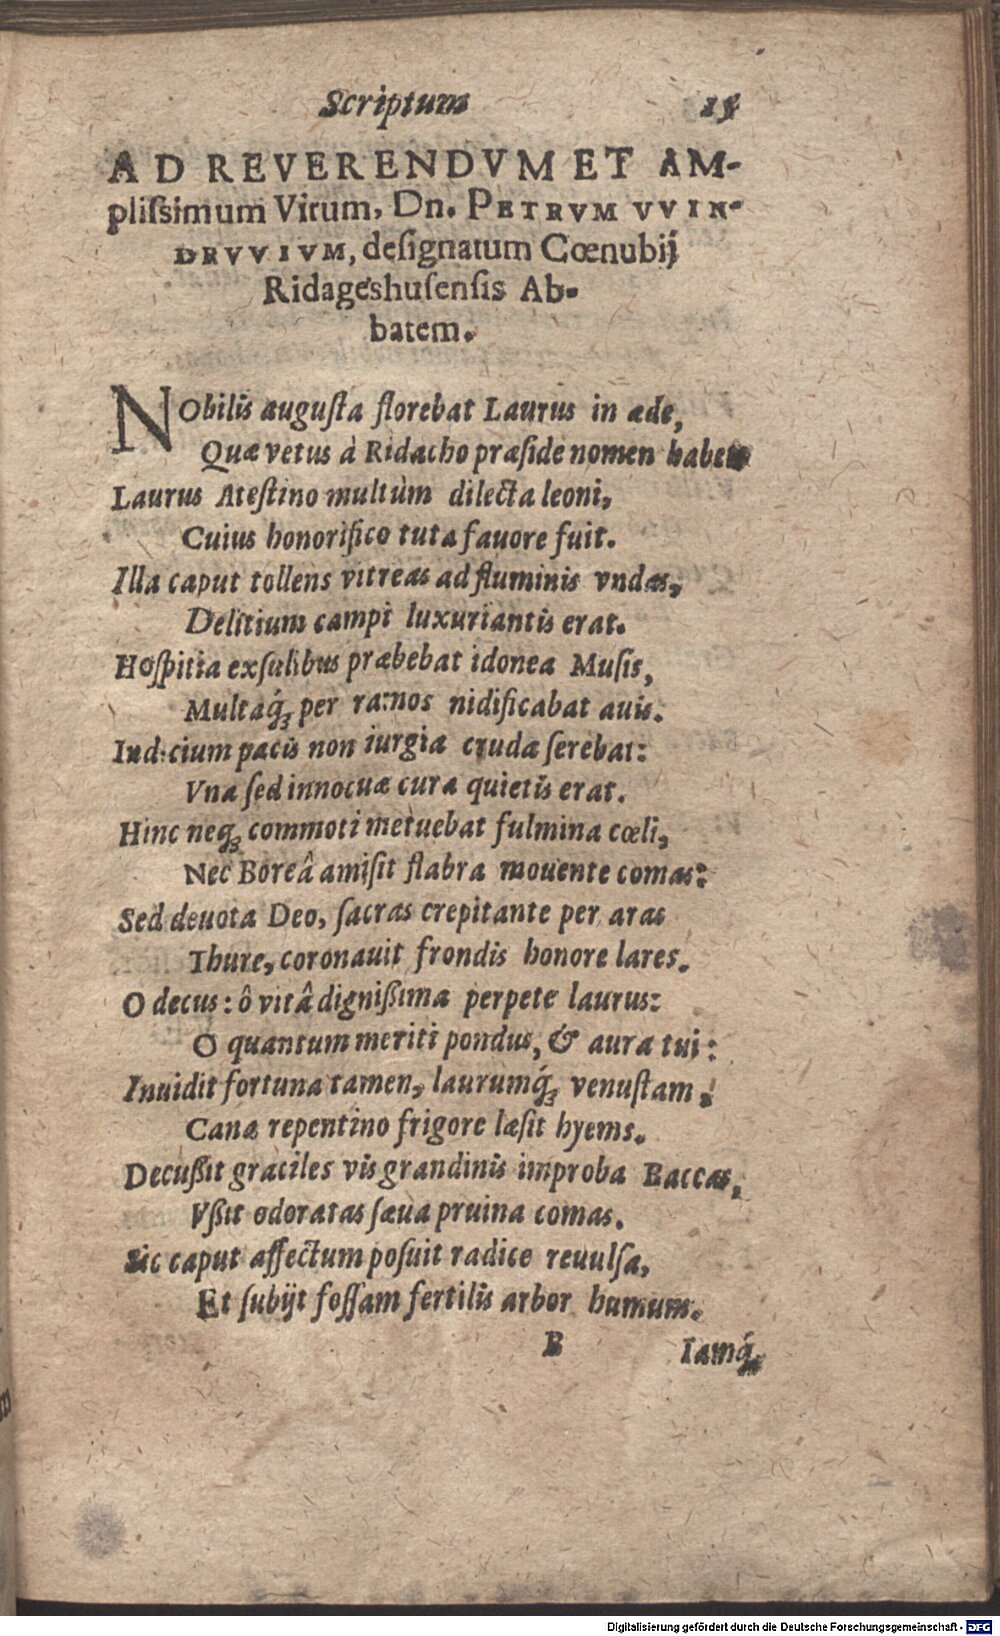 Scriptum 15
AD REVERENDVM ET AM-
plissimum Virum, Dn. PETRVM VVIN-
DRVVIVM, designatum Cœnubij
Ridageshusensis Ab-
batem.
NObilis augusta florebat Laurus in æde,
Quæ vetus à Ridacho præside nomen habet.
Laurus Atestino multùm dilecta leoni,
Cuius honorifico tuta fauore fuit.
Illa caput tollens vitreas ad fluminis vndas,
Delitium campi luxuriantis erat.
Hospitia exsulibus præbebat idonea Musis,
Multaq́; per ramos nidificabat auis.
Indicium pacis non iurgia cruda serebat:
Vna sed innocuæ cura quietis erat.
Hinc neq; commoti metuebat fulmina cœli,
Nec Boreâ amisit flabra mouente comas:
Sed deuota Deo, sacras crepitante per aras
Thure, coronauit frondis honore lares.
O decus: ô vitâ dignißima perpete laurus:
O quantum meriti pondus, & aura tui:
Inuidit fortuna tamen, laurumq́; venustam,
Canæ repentino frigore læsit hyems.
Decußit graciles vis grandinis improba Baccas,
Vßit odoratas sæua pruina comas.
Sic caput affectum posuit radice reuulsa,
Et subijt fossam fertilis arbor humum.
B Iamq́;
Digitalisierung gefördert durch die Deutsche Forschungsgemeinschaft - DFG